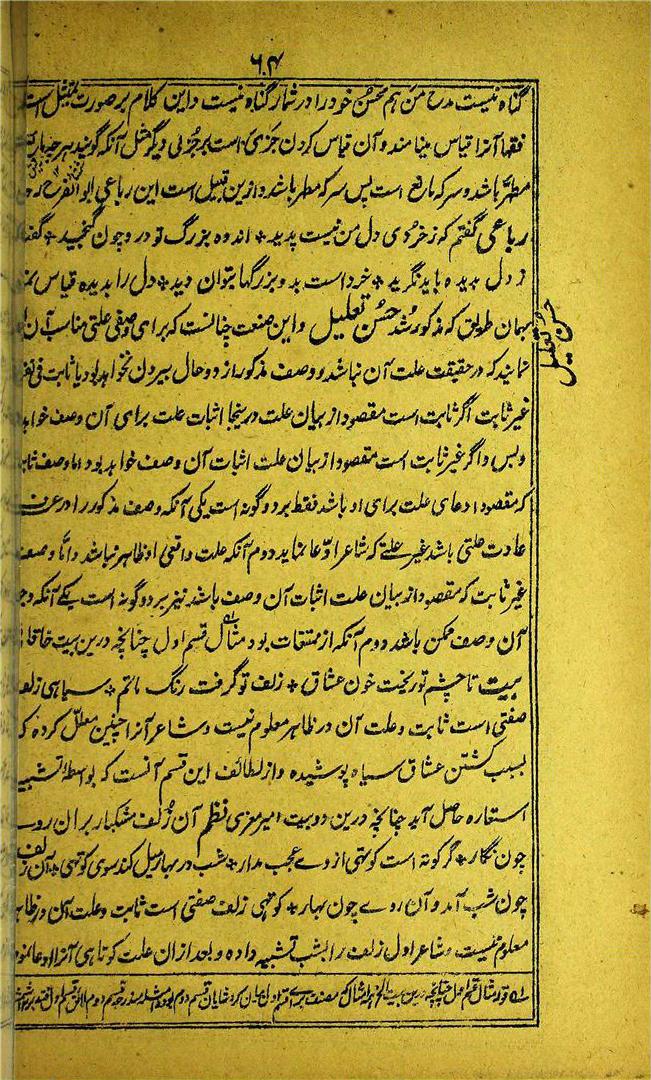 ۶۰۴
گناه نیست مدح من هم محسن خود را در شمار گناه نیست و این کلام بر صورت تمثیل است
فقها آنرا قیاس مینامند و آن قیاس کردن جزئی است بر جزئی دیگر مثل آنکه گویند هر چهار
مطهر باشد و سرکه مائع است پس سرکه مطهر باشد و ازین قبیل است این رباعی ابوالفرج
رباعی گفتم که ز خردی دل من نیست پدید * اندوه بزرگ تو درو چون گنجید * گفت
ز دل بدیده باید نگرید * خرد است بدو بزرگها بتوان دید * دل را بدیده قیاس
بهمان طریق که مذکور شد حسن تعلیل و این صنعت چنانست که برای وصفی علتی مناسب آن
نمایند که در حقیقت علت آن نباشد و وصف مذکور از دو حال بیرون نخواهد بود یا ثابت فی
غیر ثابت اگر ثابت است مقصود از بیان علت درینجا اثبات علت برای آن وصف خواهد
و بس و اگر غیر ثابت است مقصود از بیان علت اثبات آن وصف خواهد بود اما وصف ثابت
که مقصود ادعای علت برای او باشد فقط بر دو گونه است یکی آنکه وصف مذکور را در عرف
عادت علتی باشد غیر علتے که شاعر ادعا نماید دوم آنکه علت واقعی او ظاهر نباشد و اما وصف
غیر ثابت که مقصود از بیان علت اثبات آن وصف باشد نیز بر دو گونه است یکے آنکه وجود
آن وصف ممکن باشد دوم آنکه از ممتنعات بود مثال قسم اول چنانچه درین بیت خاقانی
بیت تا چشم تو ریخت خون عشاق * زلف تو گرفت رنگ ماتم * سیاهی زلف
صفتی است ثابت و علت آن در ظاهر معلوم نیست و شاعر آنرا چنین معلل کرده که
بسبب کشتن عشاق سیاه پوشیده و از لطائف این قسم آنست که بواسطهٔ تشبیه
استعاره حاصل آید چنانچه درین دو بیت امیر معزی نظم آن زلف مشکبار بران روے
چون نگار * گر کوته است کوتهی از وے عجب مدار * شب در بهار میل کند سوی کوتهی * آن زلف
چون شب آمد و آن روے چون بهار * کوتهی زلف صفتی است ثابت و علت آن در ظاهر
معلوم نیست و شاعر اول زلف را بشب تشبیه داده و بعد ازان علت کوتاهی آنرا ادعا نمود
حسن تعلیل